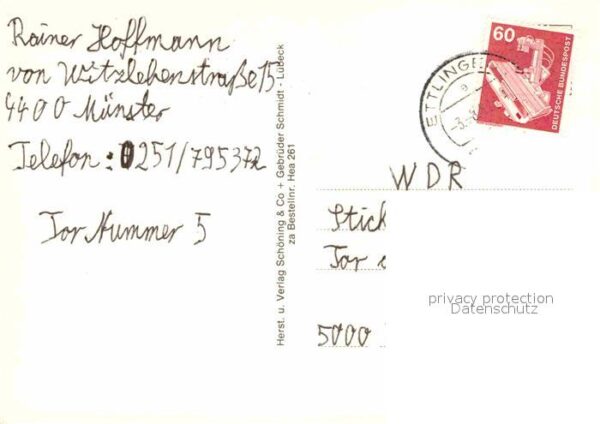 Rainer Hoffmann
von Witzlebenstraße 15
4400 Münster
Telefon: 0251/795372
Tor Nummer 5
Herst. u. Verlag Schöning & Co + Gebrüder Schmidt - Lübeck
za Bestellnr. Hea 261
60
DEUTSCHE BUNDESPOST
ETTLINGE
WDR
Stick
Tor
5000
privacy protection
Datenschutz